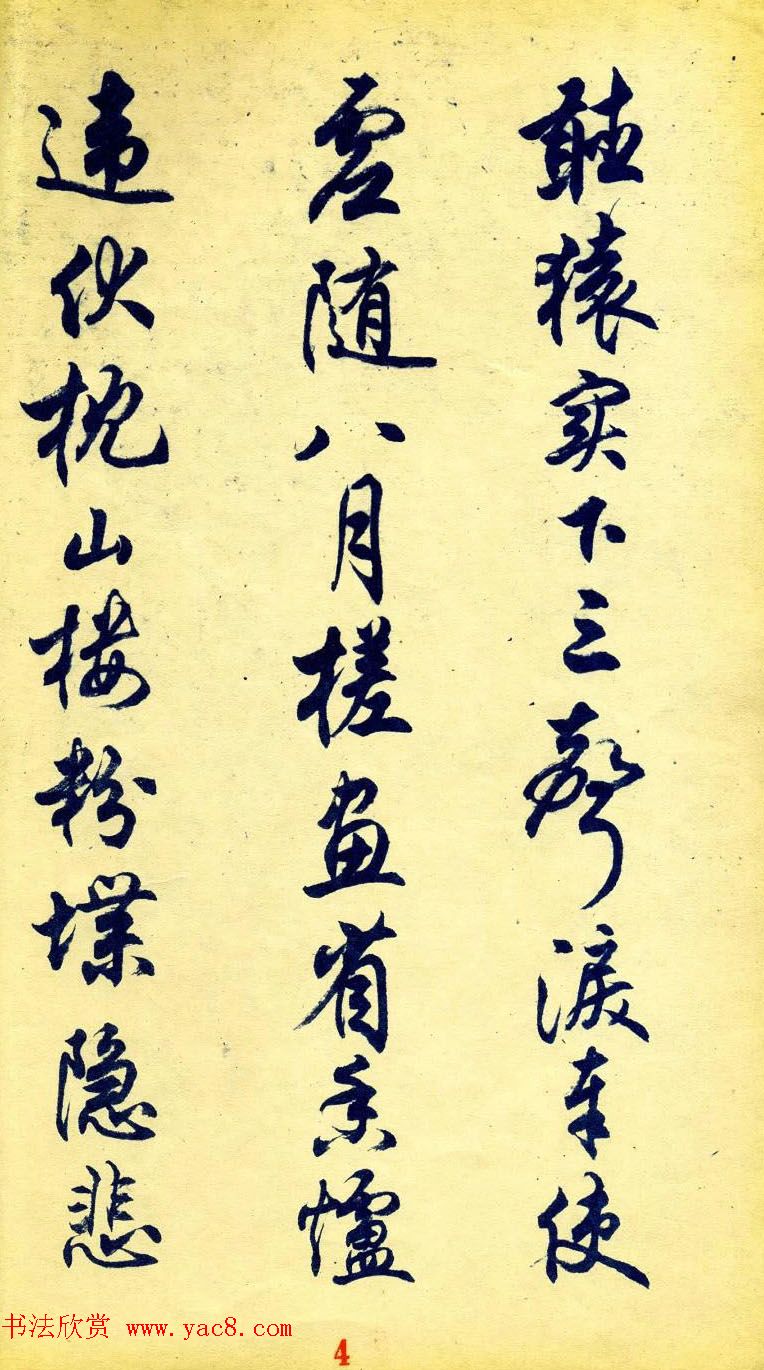 聽猿实下三聲淚奉使
虛随八月槎画省香爐
违伏枕山楼粉堞隐悲
书法欣赏 www.yac8.com
4